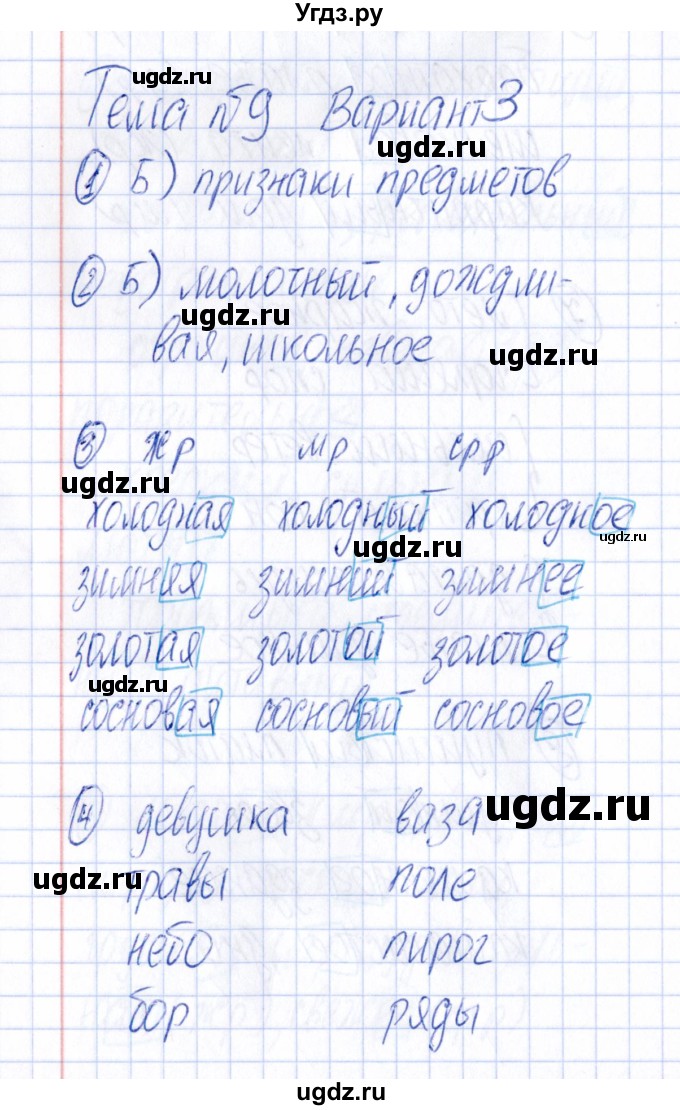 Угдз.ру
ugdz.ru
Тема №9 Вариант 3
ugdz.ru
① Б) признаки предметов
② Б) молочный, дождли-
ugdz.ru
вая, школьное
ugdz.ru
③ жр мр срр
ugdz.ru
холодная холодный холодное
ugdz.ru
ugdz.ru
зимняя зимний зимнее
золотая золотой золотое
ugdz.ru
сосновая сосновый сосновое
④ девушка ваза
ugdz.ru
ugdz.ru
травы поле
небо пирог
бор ряды
ugdz.ru